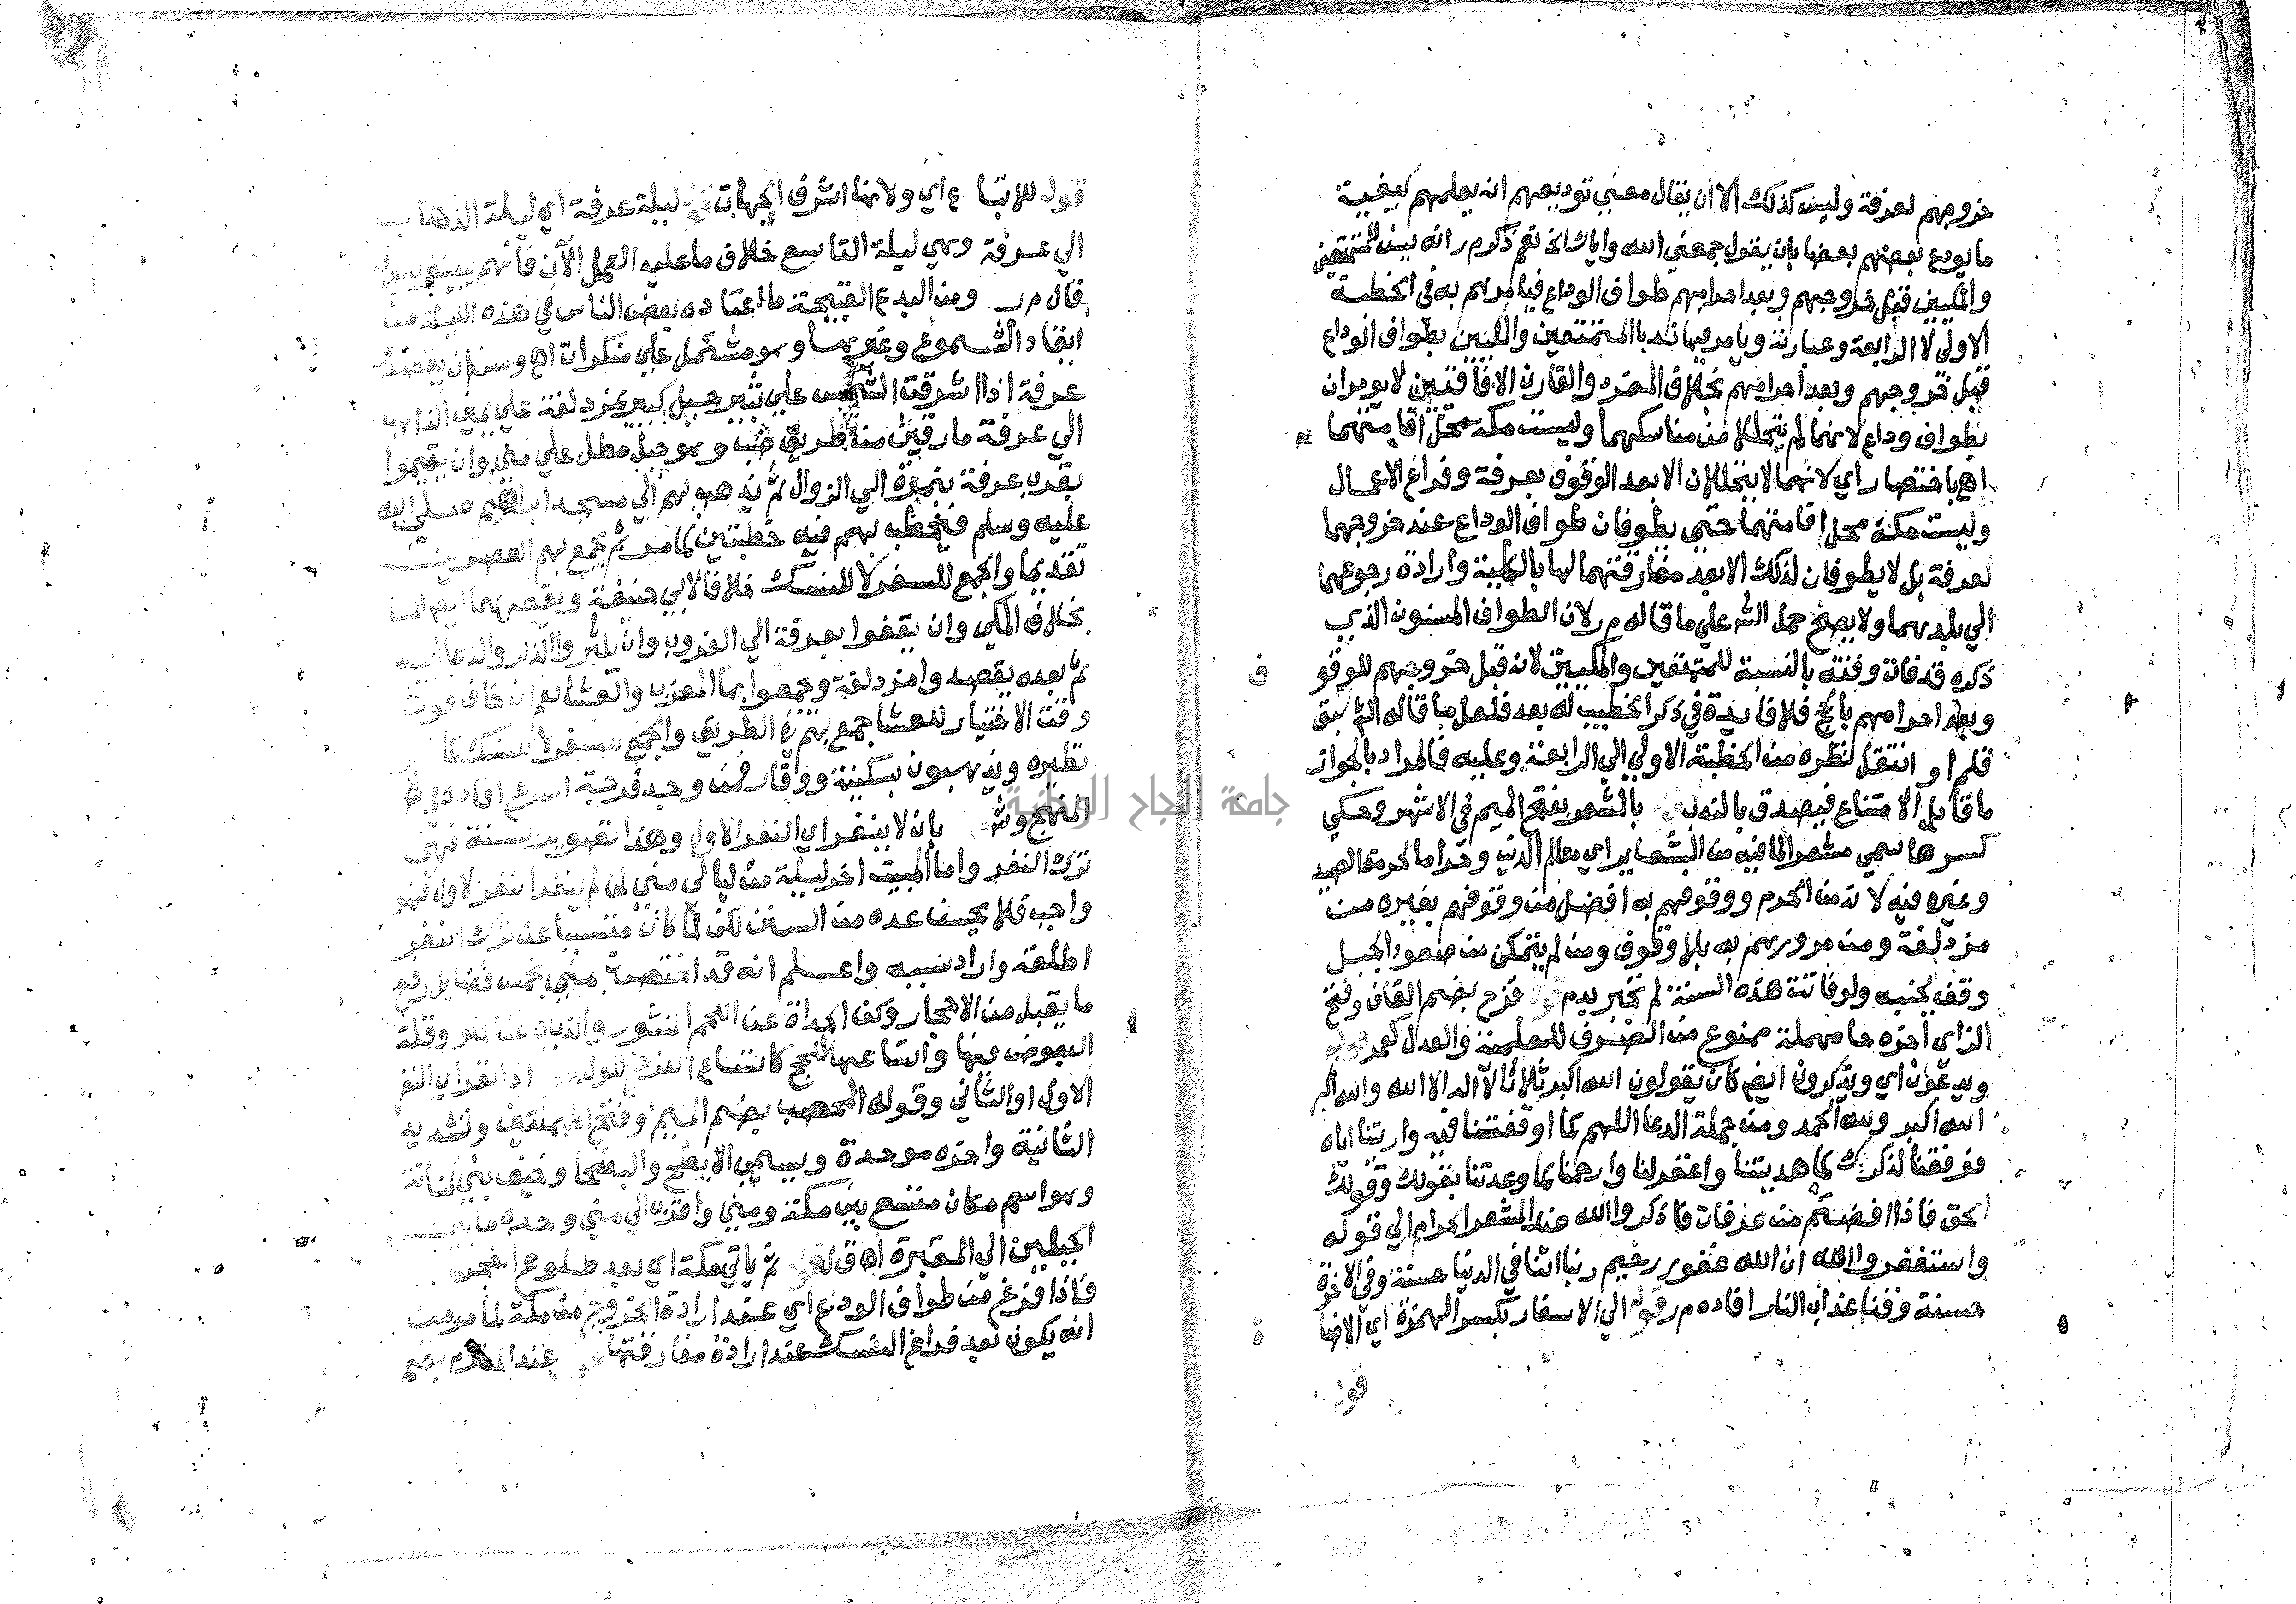 خروجهم لعرفة وليس كذلك الا ان يقال معنى توديعهم انه يعلمهم كيفية
ما يودع بعضهم بعضا بان يقول جمعني الله واياك الخ نعم ذكر م ر انه يسن للمتمتعين
والمكيين قبل خروجهم وبعد احرامهم طواف الوداع فيامرهم به في الخطبة
الاولى لا الرابعة وعبارته ويامر فيها ندبا المتمتعين والمكيين بطواف الوداع
قبل خروجهم وبعد احرامهم بخلاف المفرد والقارن الافاقيين لا يومران
بطواف وداع لانهما لم يتحللا من مناسكهما وليست مكة محل اقامتهما
اهـ باختصار اي لانهما لا يتحللان الا بعد الوقوف بعرفة وفراغ الاعمال
وليست مكة محل اقامتهما حتى يطوفان طواف الوداع عند خروجهما
لعرفة بل لا يطوفان لذلك الا بعد مفارقتهما لها بالكلية وارادة رجوعهما
الي بلدهما ولا يصح حمل الش علي ما قاله م ر لان الطواف المسنون الذي
ذكره قد فات وقته بالنسبة للمتمتعين والمكيين لانه قبل خروجهم للوقو
ف
وبعد احرامهم بالحج فلا فايدة في ذكر الخطيب له بعد فلعل ما قاله الش سبق
قلم او انتقل نظره من الخطبة الاولي الي الرابعة وعليه فالمراد بالجواز
ما قابل الامتناع فيصدق بالندب بالمشعر بفتح الميم في الاشهر وحكي
كسرها سمي مشعرا لما فيه من الشعاير اي معالم الدين وحراما لحرمة الصيد
وغيره فيه لانه من الحرم ووقوفهم به افضل من وقوفهم بغيره من
مزدلفة ومن مرورهم به بلا وقوف ومن لم يتمكن من صعود الجبل
وقف بجنبه ولو فاتت هذه السنة لم تجبر بدم قوله قزح بضم القاف وفتح
الزاي اخره حا مهملة ممنوع من الصرف للعلمية والعدل كعمر قوله
ويدعون اي ويذكرون ايضم كان يقولون الله اكبر ثلاثا لا اله الا الله والله اكبر
الله اكبر ولله الحمد ومن جملة الدعا اللهم كما اوقفتنا فيه واريتنا اياه
فوفقنا لذكرك كما هديتنا واغفر لنا وارحمنا كما وعدتنا بقولك وقولك
الحق فاذا افضتم من عرفات فاذكروا الله عند المشعر الحرام الي قوله
واستغفروا الله ان الله غفور رحيم ربنا اتنا في الدنيا حسنة وفي الاخرة
حسنة وقنا عذاب النار افاده م ر قوله الي الاسفار بكسر الهمزة اي الاضا
ة
قوله
قوله للاتباع اي ولانها اشرف الجهات قوله ليلة عرفة اي ليلة الذهاب
الي عرفة وهي ليلة التاسع خلاف ما عليه العمل الآن فانهم
قال م ر ومن البدع القبيحة ما اعتاده بعض الناس في هذه الليلة من
ايقاد الشموع وغيرها وهو مشتمل علي منكرات اهـ وسن ان يقصدوا
عرفة اذا اشرقت الشمس علي ثبير جبل كبير بمزدلفة علي يمين الذاهب
الي عرفة مارين من طريق ضب وهو جبل مطل علي منى وان يقيموا
بقرب عرفة بنمرة الي الزوال ثم يذهبوا بهم الي مسجد ابراهيم صلي الله
عليه وسلم فيخطب بهم فيه خطبتين كما مر ثم يجمع بهم العصرين
تقديما والجمع للسفر لا للنسك خلافا لابي حنيفة ويقصرهما ايضا
بخلاف المكي وان يقفوا بعرفة الي الغروب وان يكثروا الذكر والدعا فيه
ثم بعده يقصدوا مزدلفة وجمعوا بها المغرب والعشا نعم ان خاف فوت
وقت الاختيار للعشا جمع بهم في الطريق والجمع للسفر لا للنسك كما مر
نظيره ويذهبون بسكينة ووقار فمن وجد فرجة اسرع افاده في ش
المنهج وش بان لا ينفر اي النفر الاول وهذا تصوير سنة فهي
ترك النفر واما المبيت اخر ليلة من ليالي منى لمن لم ينفر النفر الاول فهو
واجب فلا يحسن عده من السنن لكن لما كان متسببا عن ترك النفر
اطلقه واراد سببه واعلم انه قد اختصت منى بخمس فضايل رفع
ما يقبل من الاحجار وكف الحداة عن اللحم المنشور والذباب عن الحلو وقلة
البعوض فيها واتساعها للحجيج كاتساع الفرج للولد اذا نفر اي النفر
الاول او الثاني وقوله المحصب بضم الميم وفتح المهملتين وتشديد
الثانية واخره موحدة ويسمى الابطح والبطحا وخيف بني كنانة
وهو اسم مكان متسع بين مكة ومنى واقرب الي منى وحده ما بين
الجبلين الي المقبرة اهـ ق ل قوله ثم ياتي مكة اي بعد طلوع الفجر
فاذا فرغ من طواف الوداع اي عند ارادة الخروج من مكة لما مر من
انه يكون بعد فراغ النسك عند ارادة مفارقتها عند الملتزم بضم
جامعة النجاح الوطنية